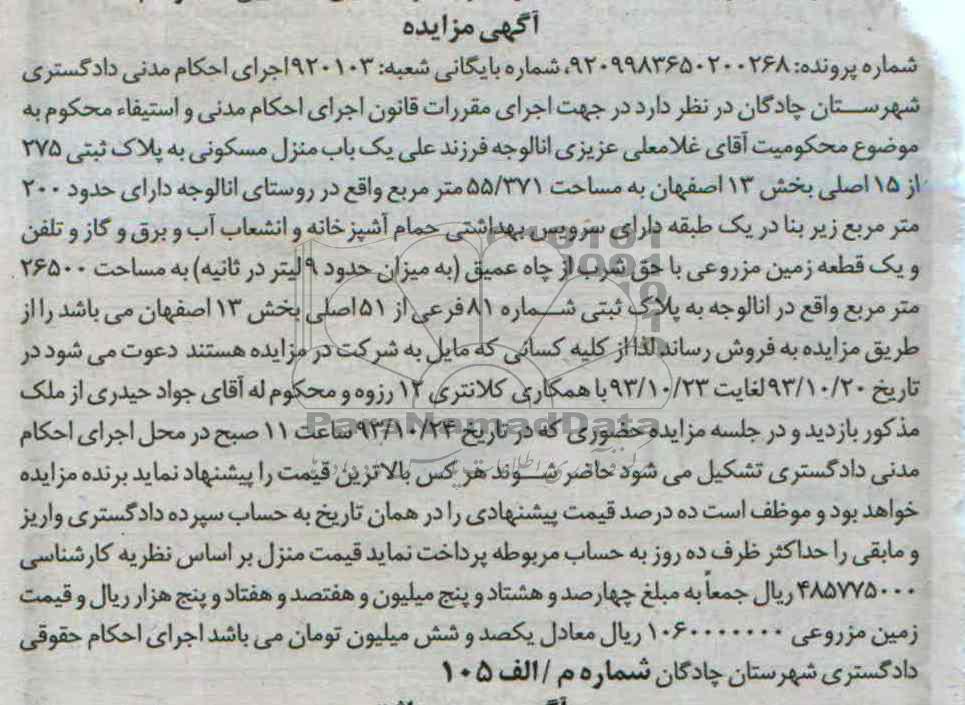 آگهی مزایده
شماره پرونده: ۹۲۰۹۹۸۳۶۵۰۲۰۰۲۶۸، شماره بایگانی شعبه: ۹۲۰۱۰۳ اجرای احکام مدنی دادگستری
شهرستان چادگان در نظر دارد در جهت اجرای مقررات قانون اجرای احکام مدنی و استیفاء محکوم به
موضوع محکومیت آقای غلامعلی عزیزی انالوجه فرزند علی یک باب منزل مسکونی به پلاک ثبتی ۲۷۵
از ۱۵ اصلی بخش ۱۳ اصفهان به مساحت ۵۵/۳۷۱ متر مربع واقع در روستای انالوجه دارای حدود ۲۰۰
متر مربع زیر بنا در یک طبقه دارای سرویس بهداشتی حمام آشپزخانه و انشعاب آب و برق و گاز و تلفن
و یک قطعه زمین مزروعی با حق شرب از چاه عمیق (به میزان حدود ۹ لیتر در ثانیه) به مساحت ۲۶۵۰۰
متر مربع واقع در انالوجه به پلاک ثبتی شماره ۸۱ فرعی از ۵۱ اصلی بخش ۱۳ اصفهان می باشد را از
طریق مزایده به فروش رساند لذا از کلیه کسانی که مایل به شرکت در مزایده هستند دعوت می شود در
تاریخ ۹۳/۱۰/۲۰ لغایت ۹۳/۱۰/۲۳ با همکاری کلانتری ۱۲ رزوه و محکوم له آقای جواد حیدری از ملک
مذکور بازدید و در جلسه مزایده حضوری که در تاریخ ۹۳/۱۰/۲۴ ساعت ۱۱ صبح در محل اجرای احکام
مدنی دادگستری تشکیل می شود حاضر شوند هر کس بالاترین قیمت را پیشنهاد نماید برنده مزایده
خواهد بود و موظف است ده درصد قیمت پیشنهادی را در همان تاریخ به حساب سپرده دادگستری واریز
و مابقی را حداکثر ظرف ده روز به حساب مربوطه پرداخت نماید قیمت منزل بر اساس نظریه کارشناسی
۴۸۵۷۷۵۰۰۰ ریال جمعاً به مبلغ چهارصد و هشتاد و پنج میلیون و هفتصد و هفتاد و پنج هزار ریال و قیمت
زمین مزروعی ۱۰۶۰۰۰۰۰۰۰ ریال معادل یکصد و شش میلیون تومان می باشد اجرای احکام حقوقی
دادگستری شهرستان چادگان شماره م / الف ۱۰۵
ParsNamadData